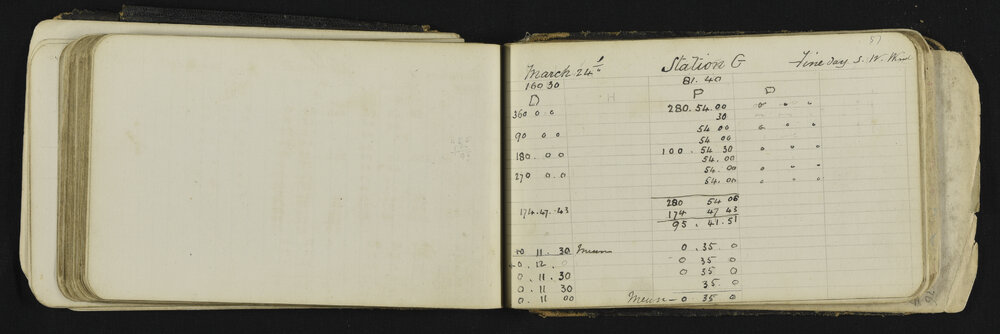 57
March 24th Station G Fine day S. W. Wind
160 30 81. 40
D H P D
360 0 0 280. 54. 00 0 " "
30
90 0 0 54 00 0 " "
54 00
180. 0 0 100. 54 30 0 " "
54. 00
270 0. 0 54. 00 " " "
54. 00 " " "
280 54 06
174. 47. 43 174 47 43
95. 41. 51
0 11. 30 Mean 0. 35. 0
0. 12. 0 0 35 0
0. 11. 30 0 35 0
0. 11 30 35. 0
0. 11 00 Mean - 0 35 0